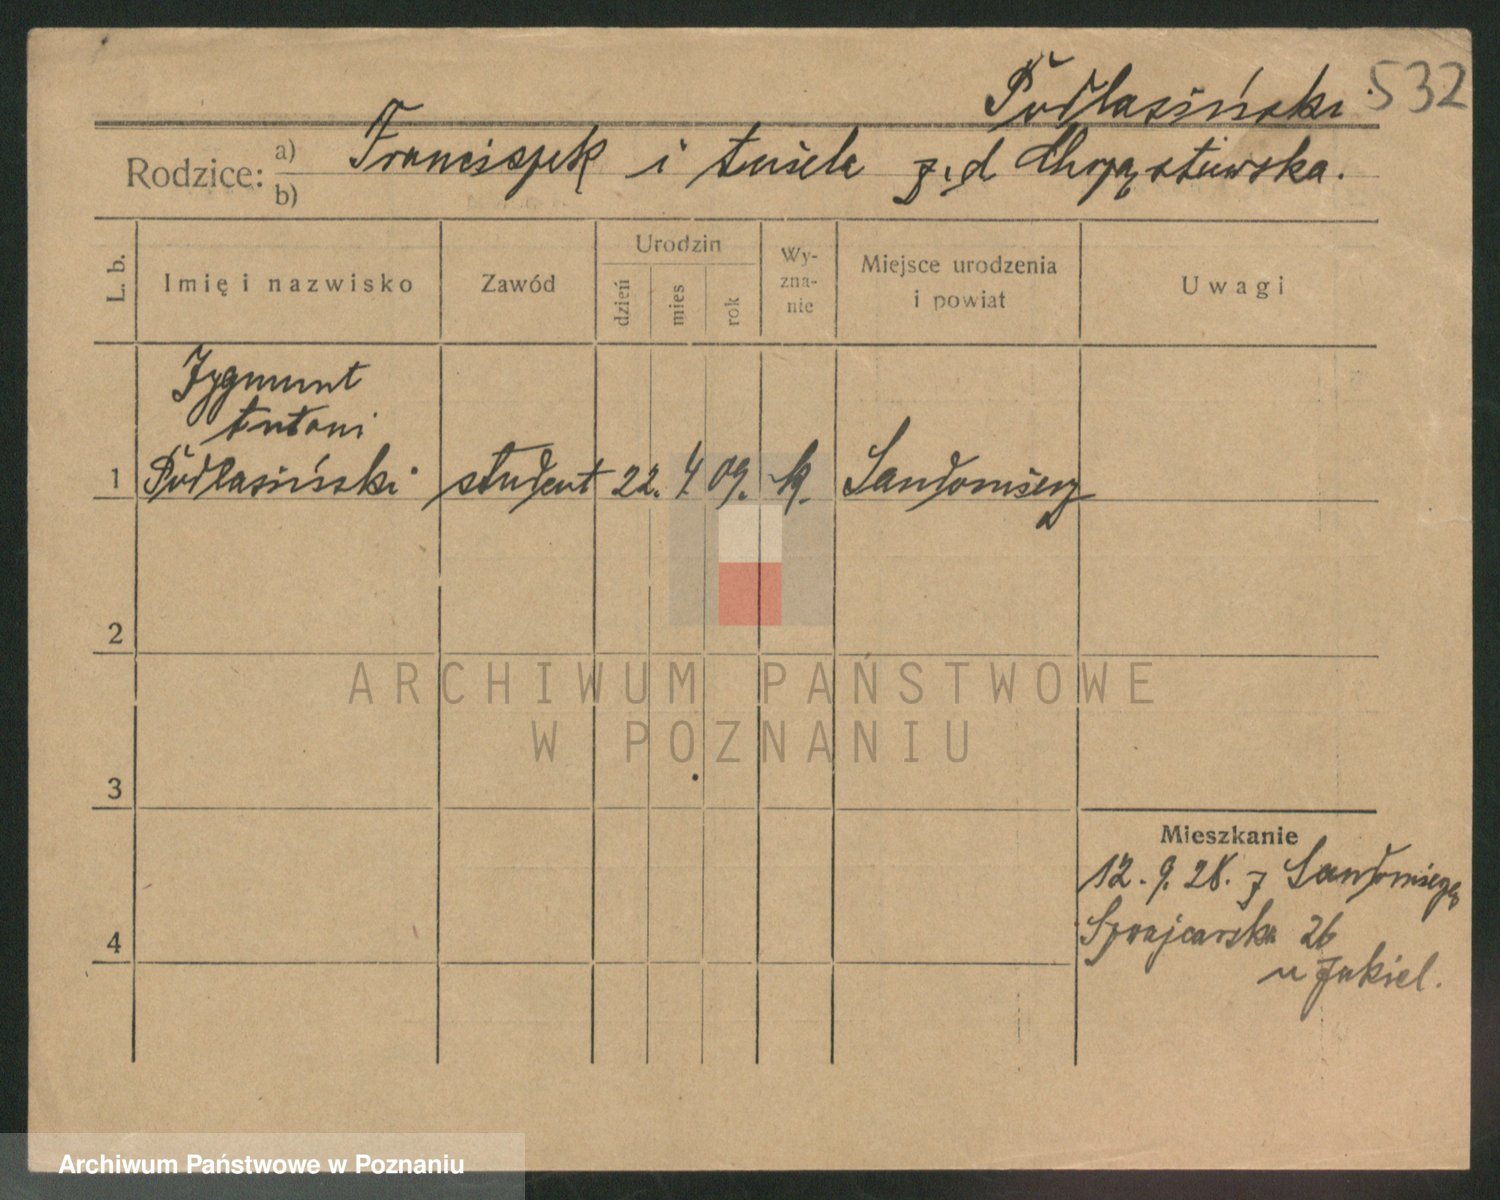 Podlasiński 532
Rodzice: a) Franciszek i Aniela z.d Chrząstowska.
b)
L. b.
Imię i nazwisko
Zawód
Urodzin
dzień
mies
rok
Wy-
zna-
nie
Miejsce urodzenia
i powiat
Uwagi
Zygmunt
Antoni
1 Podlasiński student 22. 4. 09. Sandomierz
2
3
4
Mieszkanie
12. 9. 28. z Sandomierza
Szwajcarska 26
u Jakiel.
ARCHIWUM PAŃSTWOWE
W POZNANIU
Archiwum Państwowe w Poznaniu